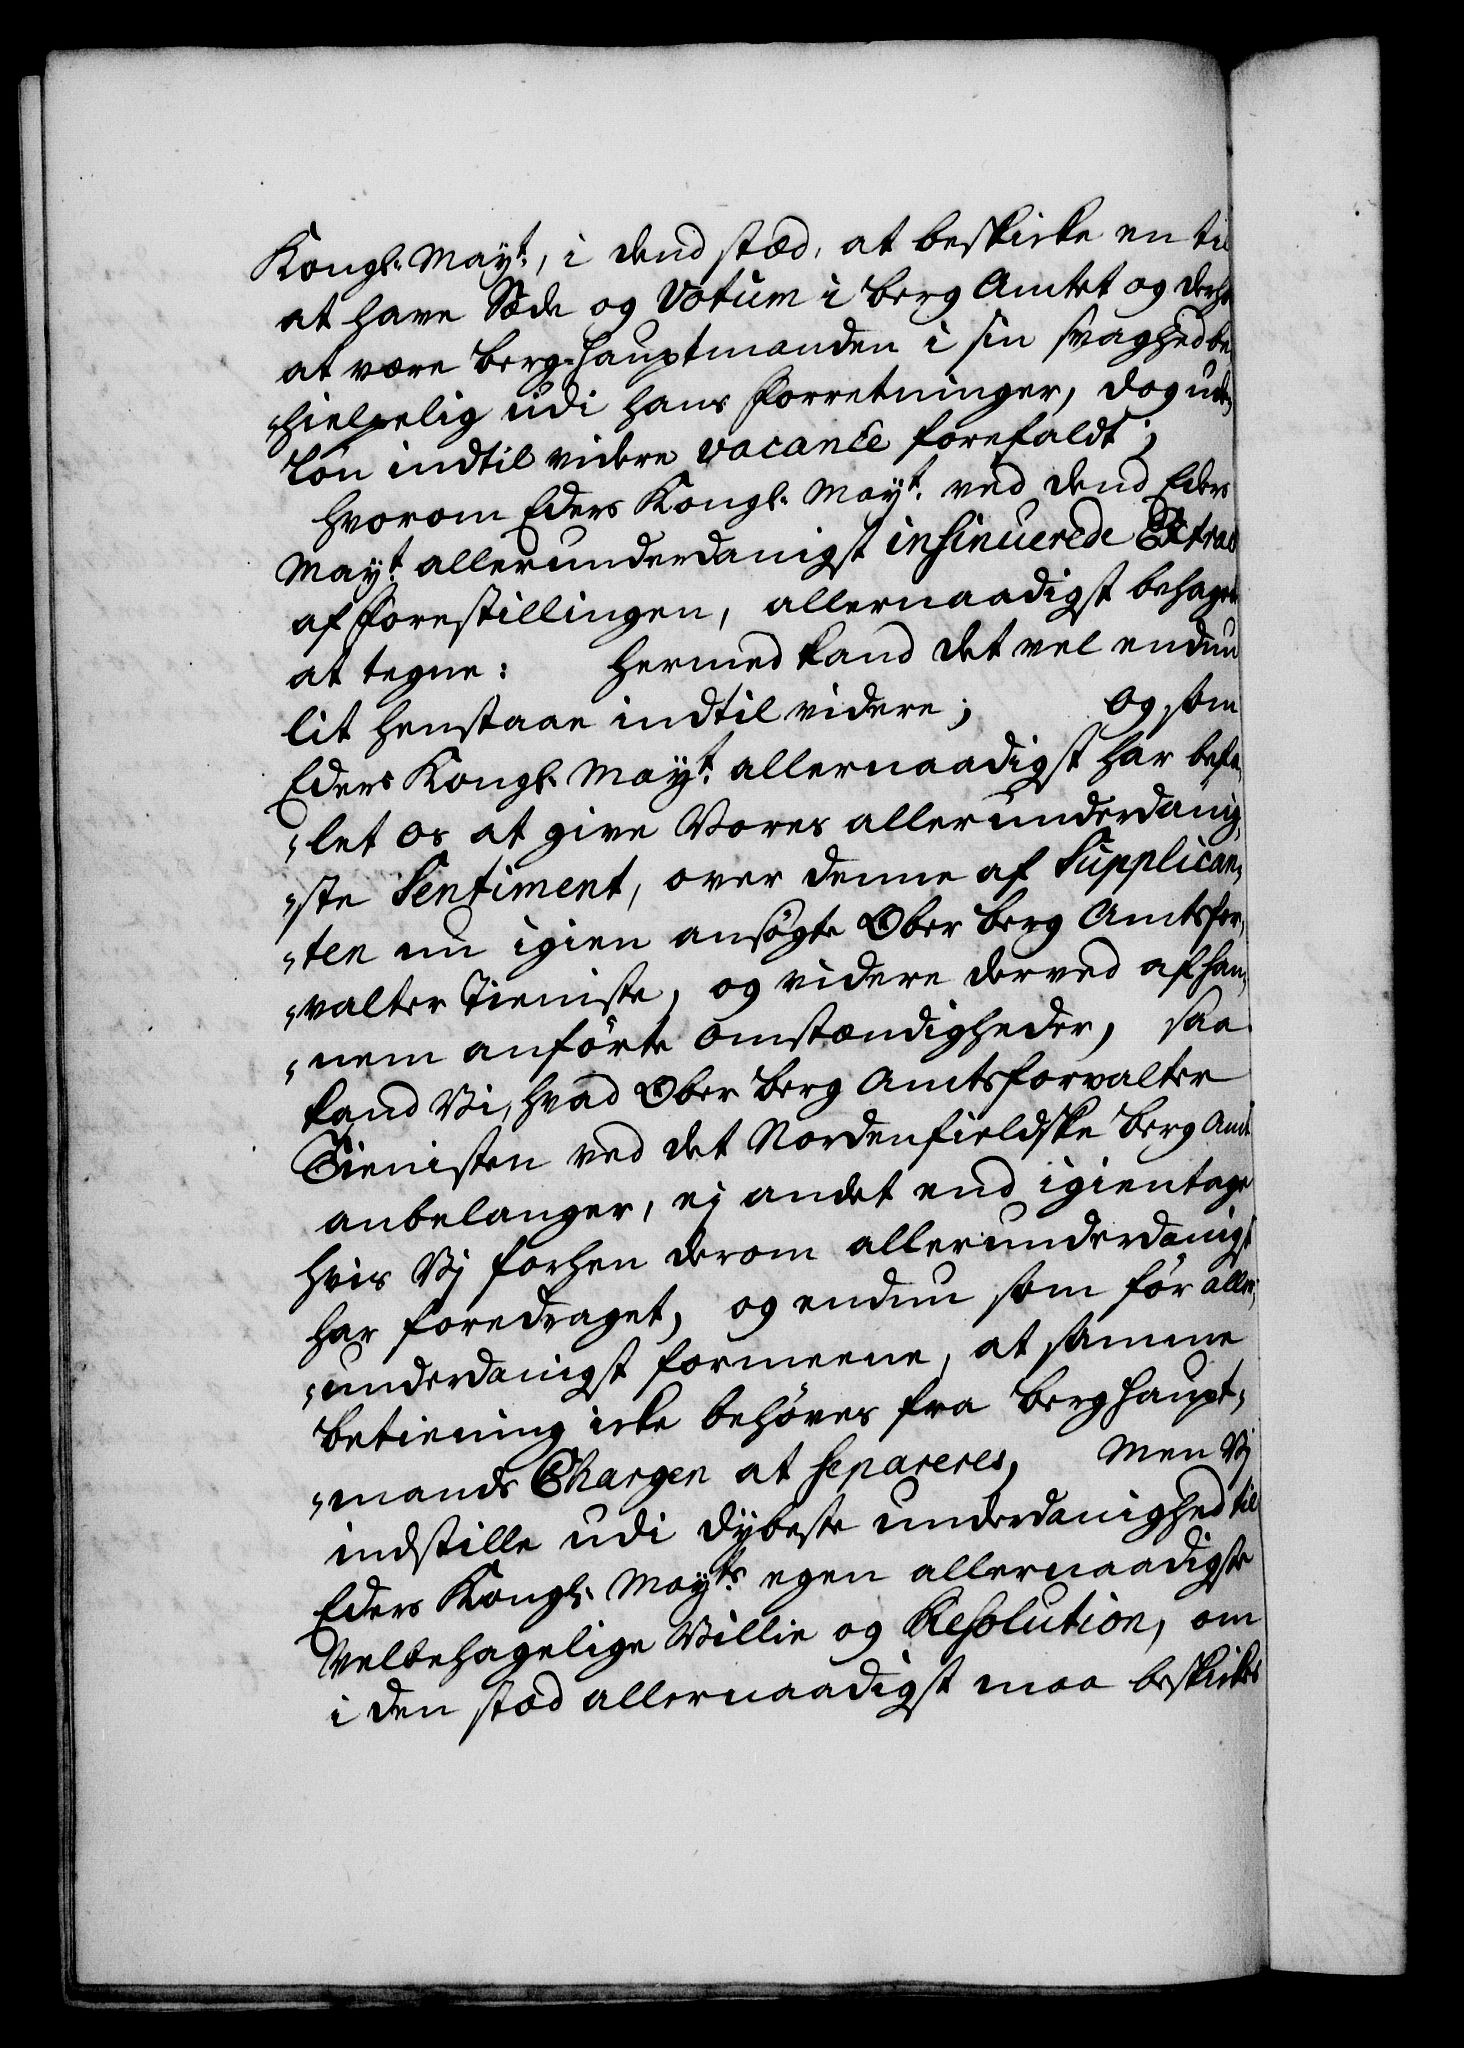 Kongl: Mayt:, i dend stæd, at beskicke en til
at have Sæde og Votum i Berg Amtet og derho
at være Berg-Hauptmanden i sin svaghed be
„hielpelig udi hans Forretninger, dog uden
Løn indtil videre vacance forefaldt;
hvorom Eders Kongl: Mayt: ved dend Eders
Mayt: allerunderdanigst insinuerede Extract
af Forestillingen, allernaadigst behaget
at tegne: Hermed kand det vel endnu
lit henstaae indtil videre; Og som
Eders Kongl: Mayt: allernaadigst har befa„
„let os at give Vores allerunderdanig„
„ste Sentiment, over denne af Supplican„
„ten nu igien ansøgte Ober Berg Amtsfor„
„valter Tieniste, og videre derved af ham„
„nem anførte Omstændigheder, saa
kand Vi, hvad Ober Berg Amtsforvalter
Tienisten ved det Nordenfieldske Berg Amt
anbelanger, ej andet end igientage
hvis Vj forhen derom allerunderdanigst
har foredraget, og endnu som før aller„
„underdanigst formeene, at samme
betiening icke behøves fra Berg Haupt„
„mands Chargen at separeres, Men Vj
indstille udi dybeste underdanighed til
Eders Kongl: Mayts: egen allernaadigste
Velbehagelige Villie og Resolution, om
i den stæd allernaadigst maa beskickes